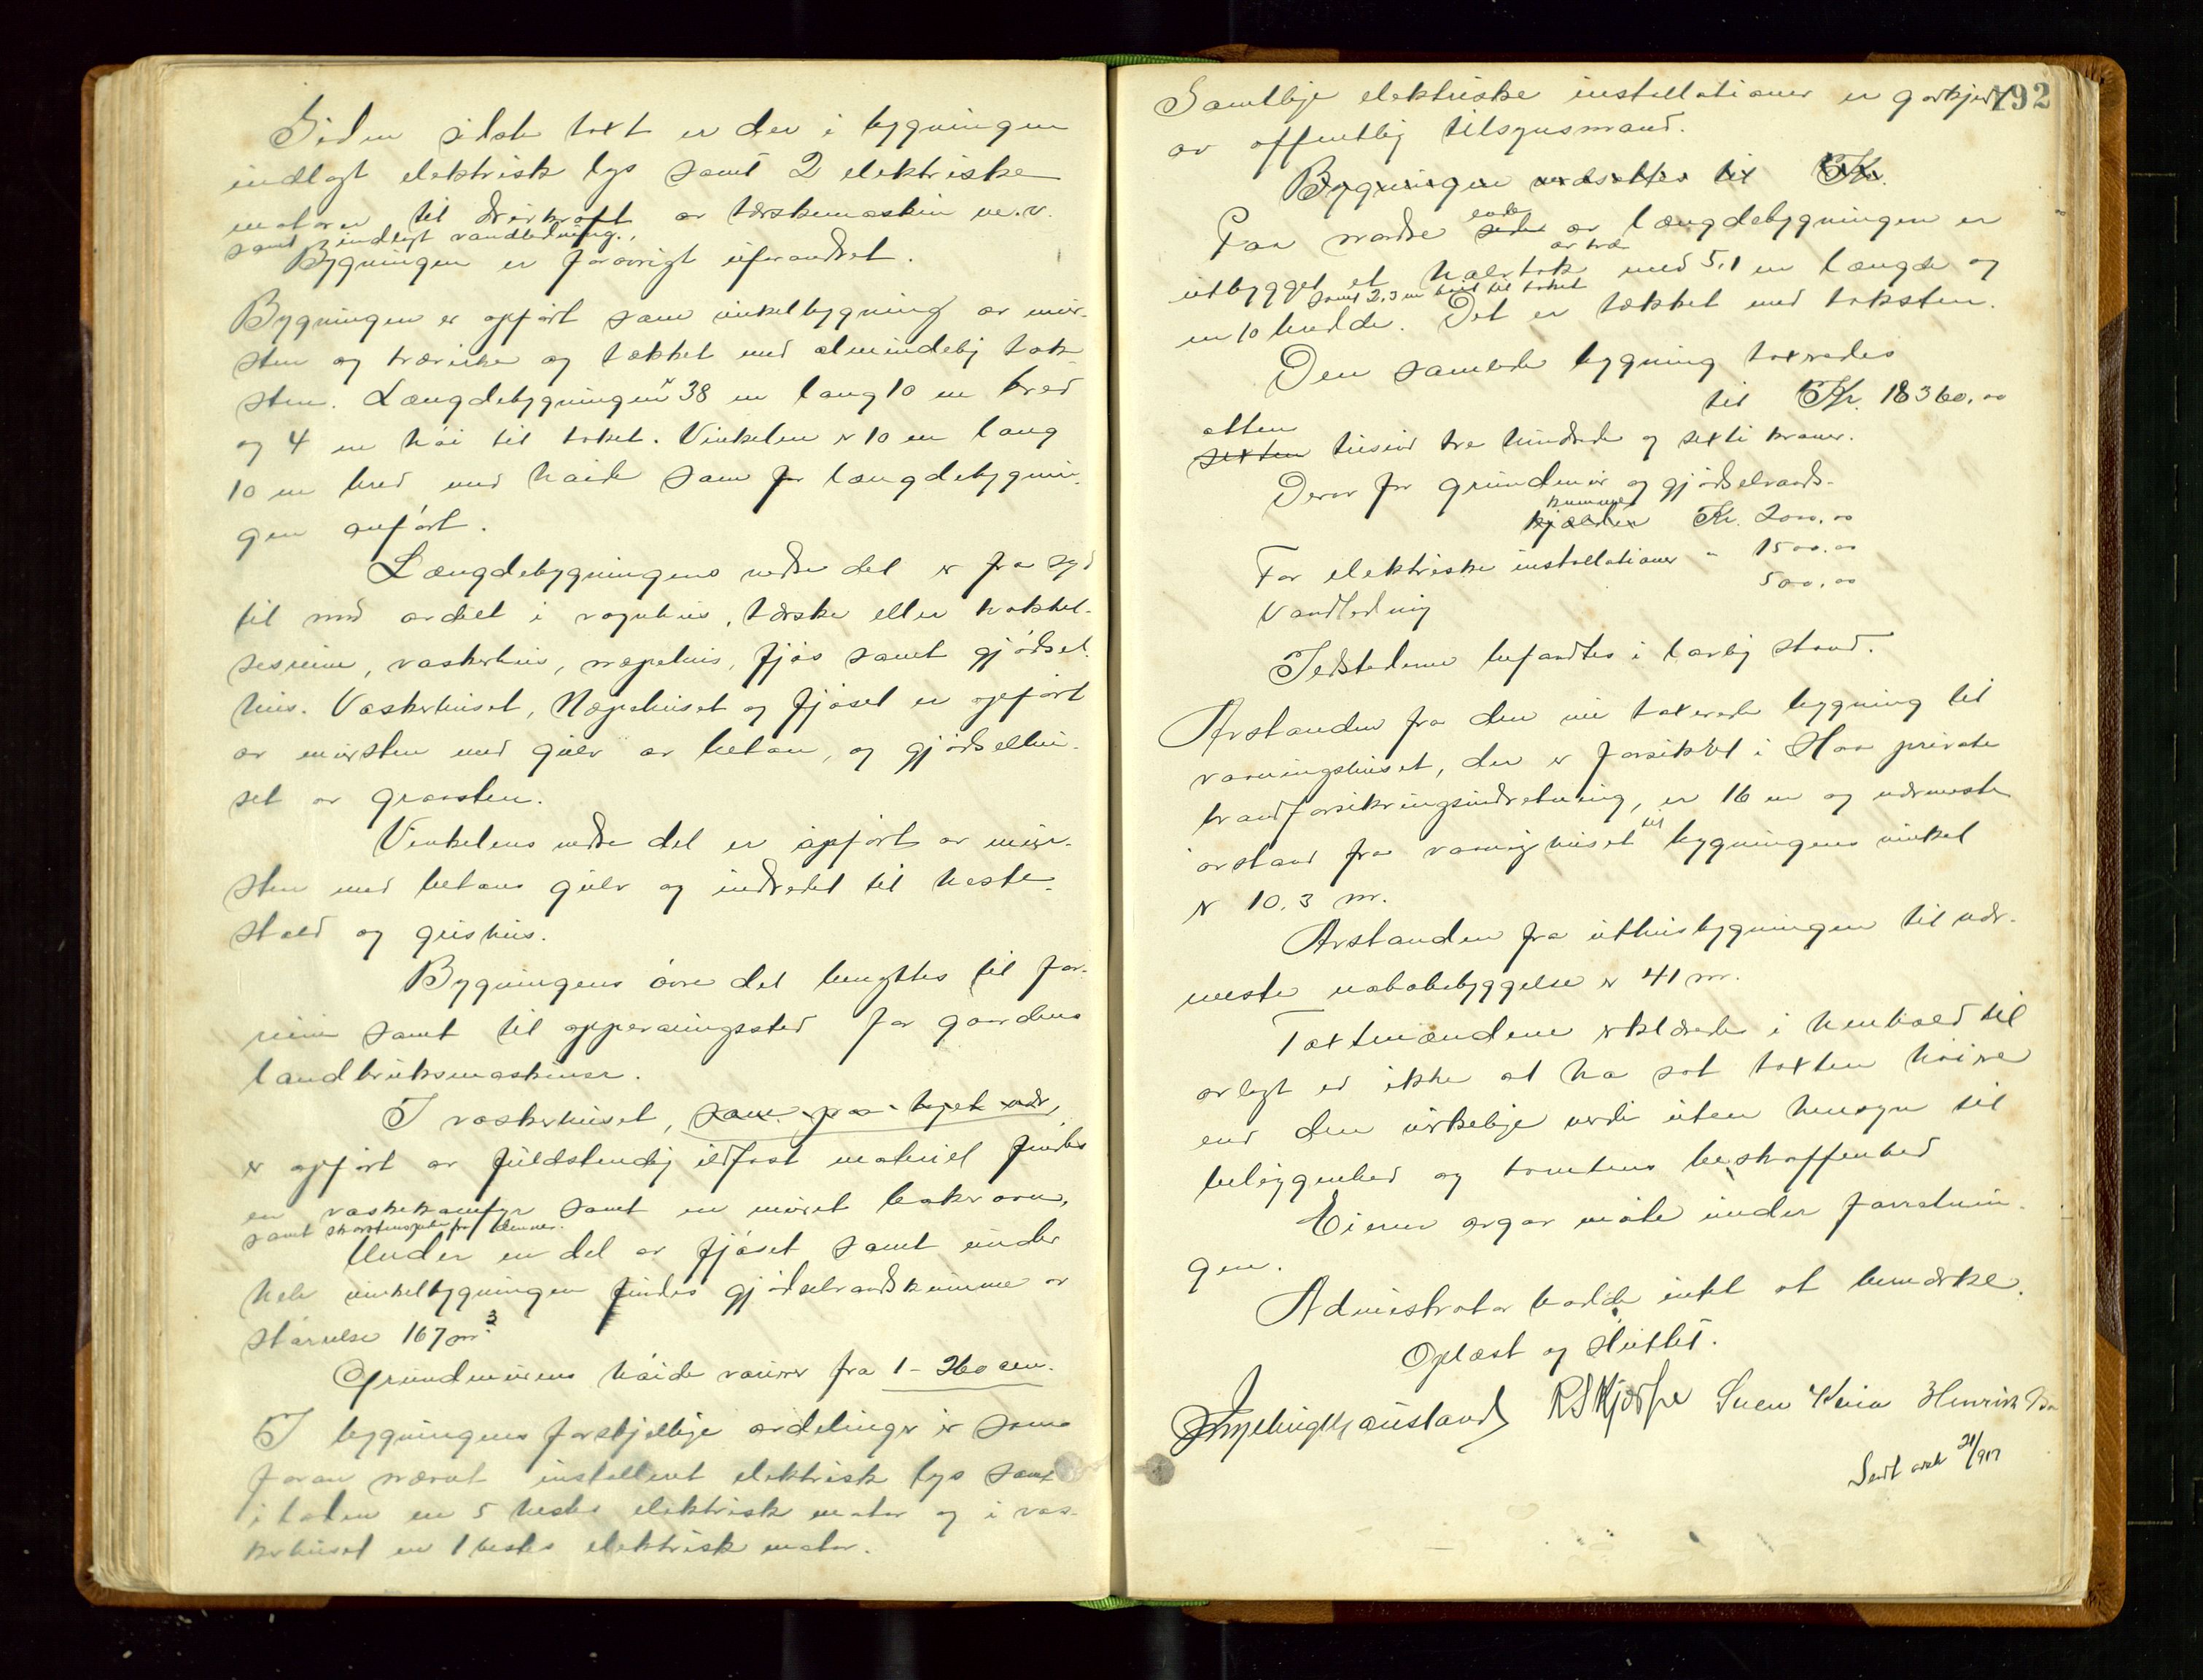 Siden sidste taxt er der i bygningen
indlagt elektrisk lys samt 2 elektriske
motorer til drivkraft av tærskemaskin m.v.
samt indlagt vandledning.
Bygningen er forøvrigt uforandret.
Bygningen er opført som vinkelbygning av mur-
sten og træverk og tækket med almindelig tak
sten. Længdebygningen er 38 m lang 10 m bred
og 4 m høi til taket. Vinkelen er 10 m lang
10 m bred med høide som for længdebygnin-
gen anført.
Længdebygningens nedre del er fra syd
til nord avdelt i vognhus, tærske eller hakkel-
sesrum, vaskerhus, næpehus, fjøs samt gjødsel-
hus. Vaskerhuset, Næpehuset og fjøset er opført
av mursten med gulv av beton, og gjødselhu-
set av graasten.
Vinkelens nedre del er opført av mur-
sten med betons gulv og indredet til heste-
stald og grishus.
Bygningens øvre del benyttes til for-
rum samt til opbevaringssted for gaardens
landbruksmaskiner.
I vaskerhuset, som
er opført av fuldstendig ildfast materiel findes
en vaskekomfyr samt en muret bakerovn,
samt skorstenspibe fra denne.
Under en del av fjøset samt under
hele vinkelbygningen findes gjødselvandskumme av
størrelse 167 m³.
Grundmurens høide varierer fra 1 - 260 cm.
I bygningens forskjellige avdelinger er som
foran nævnt installeret elektrisk lys samt
i laden en 5 hestes elektrisk motor og i vas-
kerhuset en 1 hestes elektrisk motor.
192
Samtlige elektriske installationer er godkjendt
av offentlig tilsynsmand.
Bygningen værdsættes til Kr.
Paa nordre side ende av længdebygningen er
av træ
utbygget et halvtak med 5,1 m længde og
samt 2,3 m høit til taket
m 10 bredde. Det er tækket med taksten.
Den samlede bygning taxeredes
til Kr. 18360,00
atten
sexten tusind tre hundrede og sexti kroner.
Derav for grundmur og gjødselvands-
kumme
kjælder Kr. 2000,00
For elektriske installationer " 1500.00
Vandledning 500,00
Ildstederne befandtes i lovlig stand.
Avstanden fra den nu taxerede bygning til
vaaningshuset, der er forsikret i Haa private
brandforsikringsindretning, er 16 m og nærmeste
avstand fra vaaningshuset til bygningens vinkel
er 10,3 m.
Avstanden fra uthusbygningen til nær-
meste nabobebyggelse er 41 m.
Taxtmændene erklærede i henhold til
avlagt ed ikke at ha sat taxten høiere
end den virkelige værdi uten hensyn til
beliggenhed og tomtens beskaffenhed
Eieren avgav møte under forretnin-
gen.
Administrator hadde intet at bemærke.
Oplæst og sluttet.
R S Kjærpe Sven Kvia Henrik
Sendt avsk 21/917